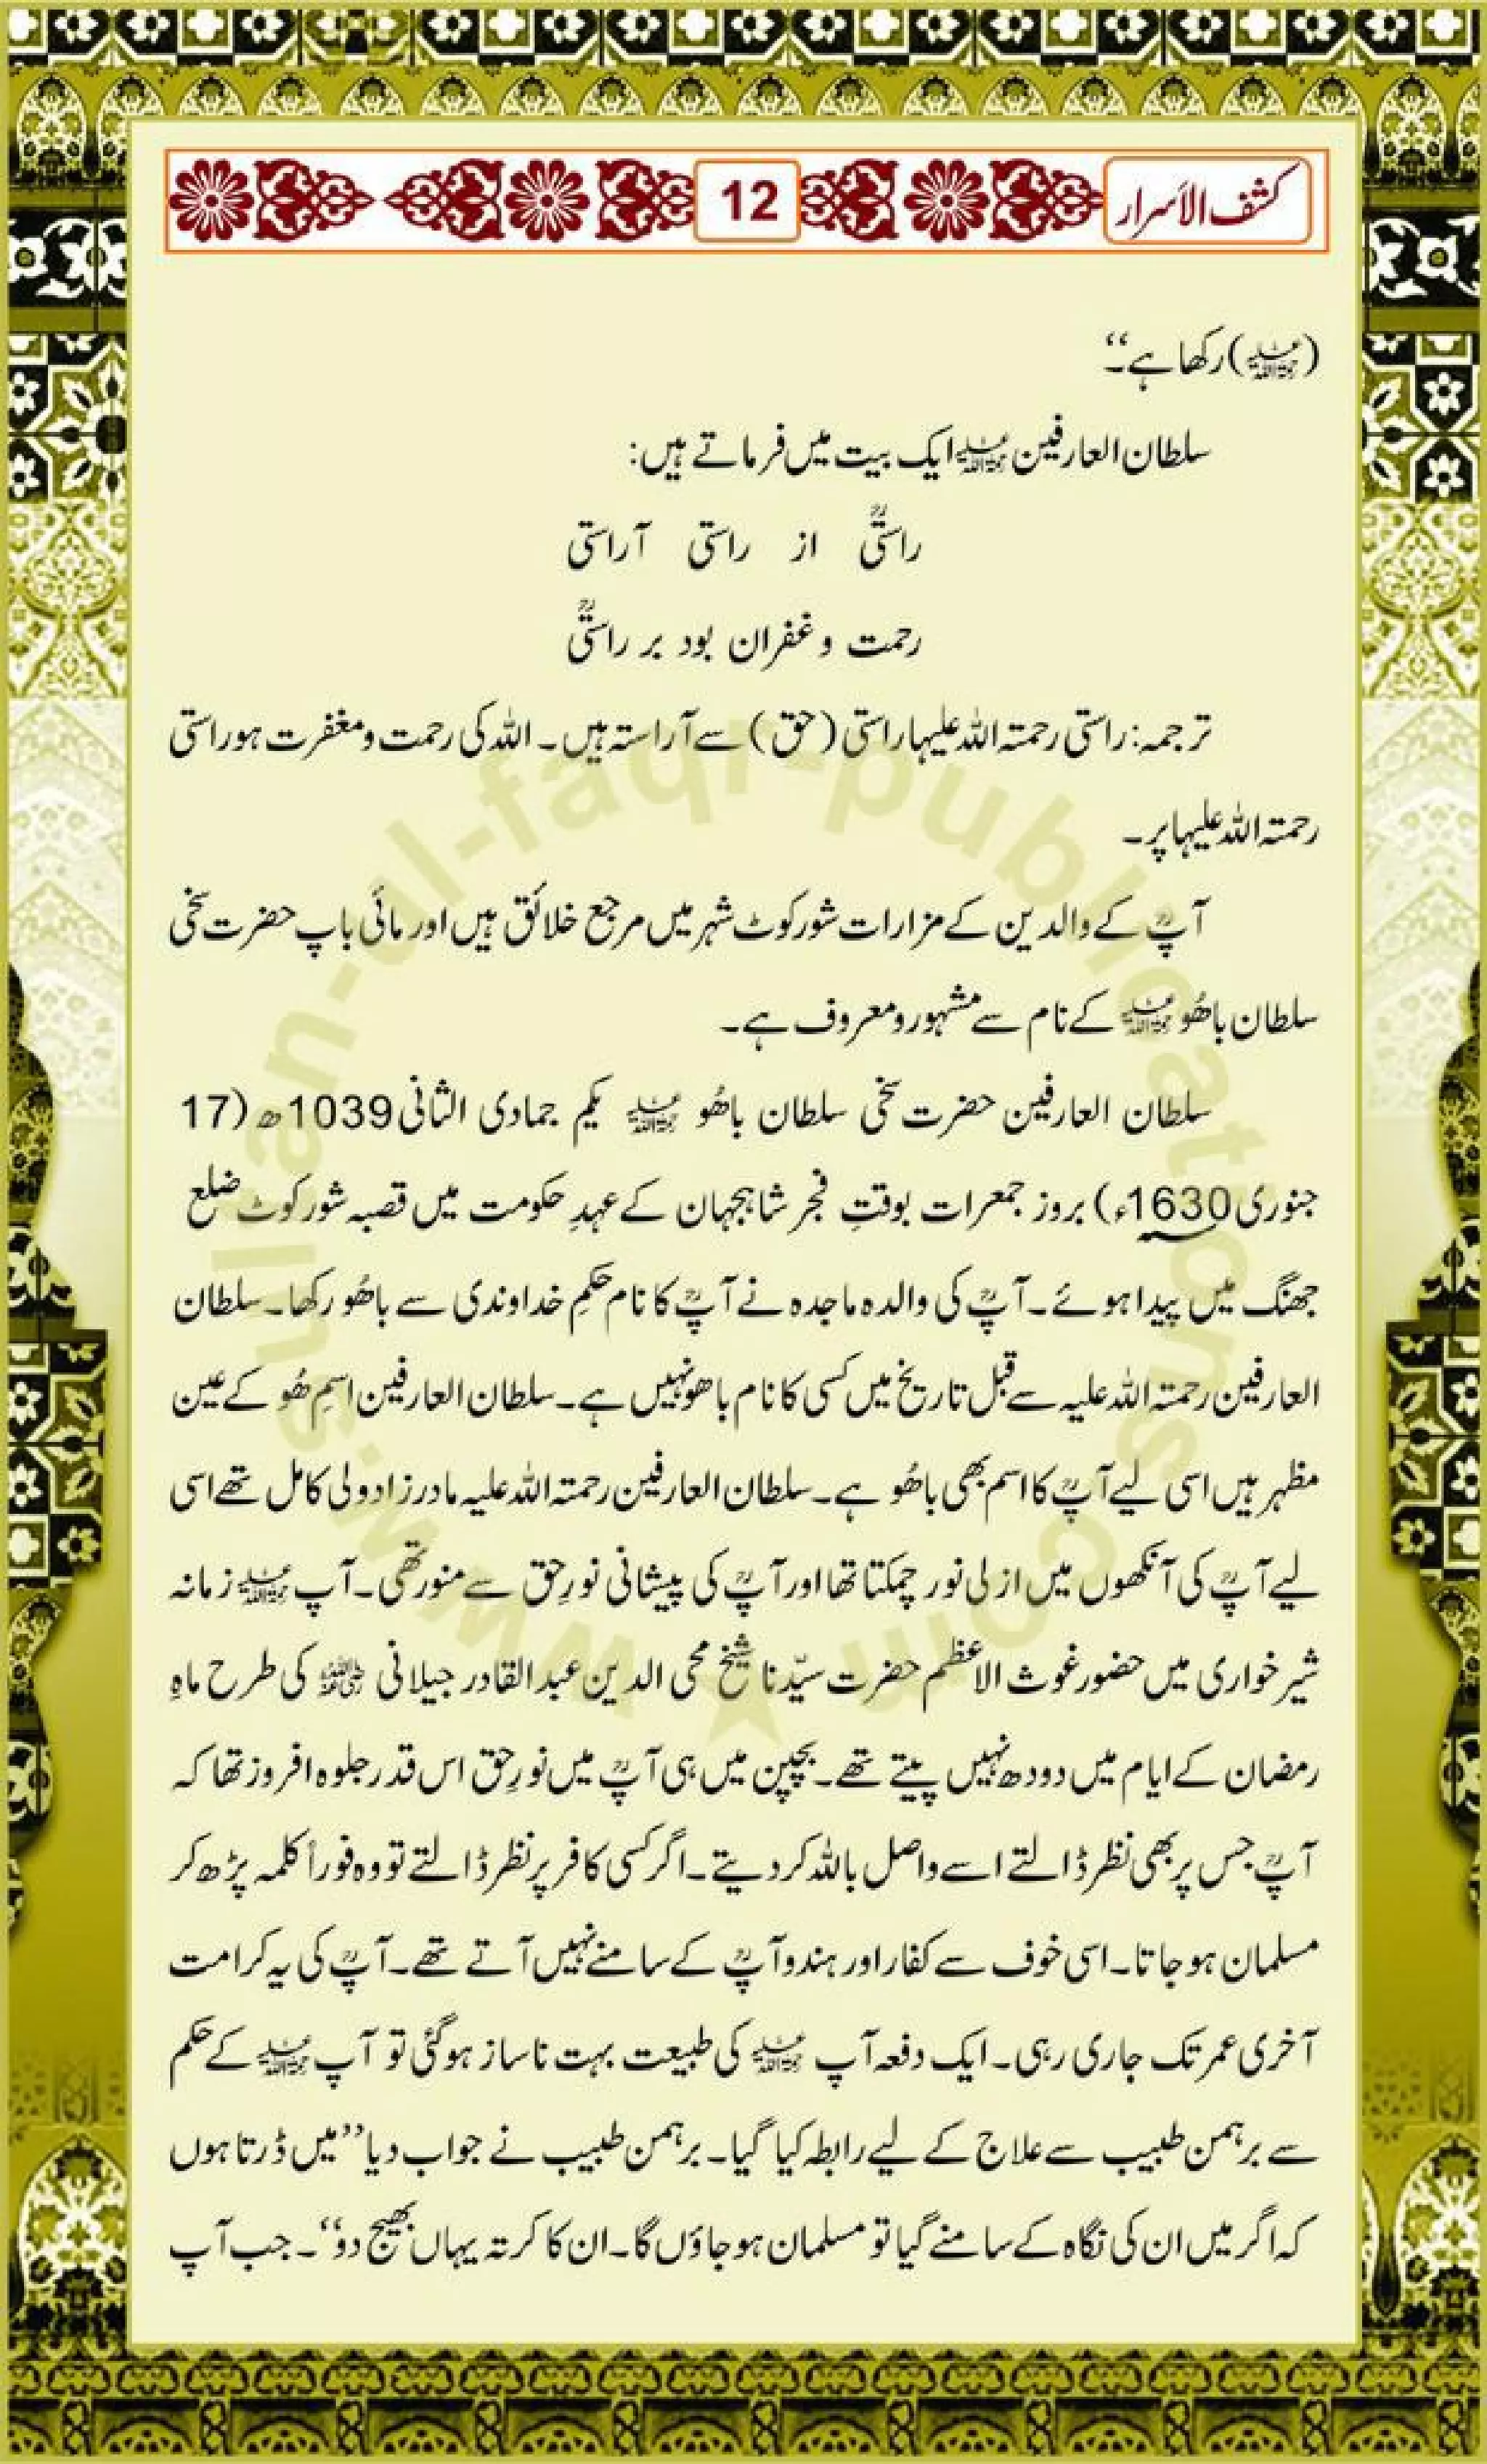 کشف الاسرار
12
(رحمۃ اللہ علیہ) رکھا ہے۔‘‘
سلطان العارفین رحمۃ اللہ علیہ ایک بیت میں فرماتے ہیں:
راستیؒ از راستی آراستی
رحمت و غفران بود بر راستیؒ
ترجمہ: راستی رحمتہ اللہ علیہا راستی (حق) سے آراستہ ہیں۔ اللہ کی رحمت و مغفرت ہو راستی
رحمتہ اللہ علیہا پر۔
آپؒ کے والدین کے مزارات شورکوٹ شہر میں مرجع خلائق ہیں اور مائی باپ حضرت سخی
سلطان باھُو رحمۃ اللہ علیہ کے نام سے مشہور و معروف ہے۔
سلطان العارفین حضرت سخی سلطان باھُو رحمۃ اللہ علیہ یکم جمادی الثانی 1039ھ (17
جنوری 1630ء) بروز جمعرات بوقتِ فجر شاہجہان کے عہدِ حکومت میں قصبہ شورکوٹ ضلع
جھنگ میں پیدا ہوئے۔ آپؒ کی والدہ ماجدہ نے آپؒ کا نام حکمِ خداوندی سے باھُو رکھا۔ سلطان
العارفین رحمتہ اللہ علیہ سے قبل تاریخ میں کسی کا نام باھو نہیں ہے۔ سلطان العارفین اسمِ ھُو کے عین
مظہر ہیں اسی لیے آپؒ کا اسم بھی باھُو ہے۔ سلطان العارفین رحمتہ اللہ علیہ مادر زاد ولی کامل تھے اسی
لیے آپؒ کی آنکھوں میں ازلی نور چمکتا تھا اور آپؒ کی پیشانی نورِ حق سے منور تھی۔ آپ رحمۃ اللہ علیہ زمانہ
شیر خواری میں حضور غوث الاعظم حضرت سیّدنا شیخ محی الدین عبدالقادر جیلانی رضی اللہ عنہ کی طرح ماہِ
رمضان کے ایام میں دودھ نہیں پیتے تھے۔ بچپن میں ہی آپؒ میں نورِ حق اس قدر جلوہ افروز تھا کہ
آپؒ جس پر بھی نظر ڈالتے اسے واصل باللہ کر دیتے۔ اگر کسی کافر پر نظر ڈالتے تو وہ فوراً کلمہ پڑھ کر
مسلمان ہو جاتا۔ اسی خوف سے کفار اور ہندو آپؒ کے سامنے نہیں آتے تھے۔ آپؒ کی یہ کرامت
آخری عمر تک جاری رہی۔ ایک دفعہ آپ رحمۃ اللہ علیہ کی طبیعت بہت ناساز ہو گئی تو آپ رحمۃ اللہ علیہ کے حکم
سے برہمن طبیب سے علاج کے لیے رابطہ کیا گیا۔ برہمن طبیب نے جواب دیا ’’میں ڈرتا ہوں
کہ اگر میں ان کی نگاہ کے سامنے گیا تو مسلمان ہو جاؤں گا۔ ان کا کرتہ یہاں بھیج دو‘‘۔ جب آپ
www.sultan-ul-faqr-publications.com